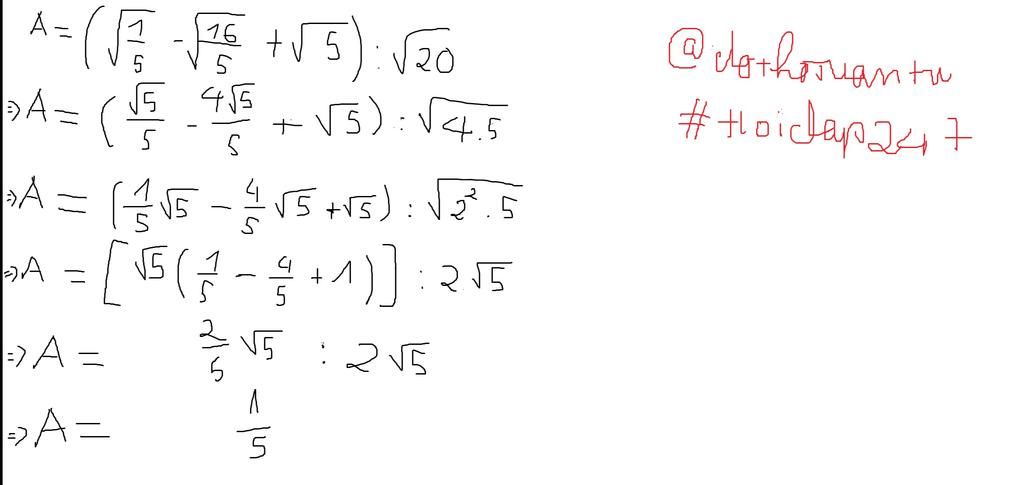 A = (√(1/5) - √(16/5) + √5) : √20
=> A = (√5/5 - 4√5/5 + √5) : √(4.5)
=> A = (1/5 √5 - 4/5 √5 + √5) : √(2² . 5)
=> A = [√5 (1/5 - 4/5 + 1)] : 2√5
=> A = 2/5 √5 : 2√5
=> A = 1/5
#Hoidap247